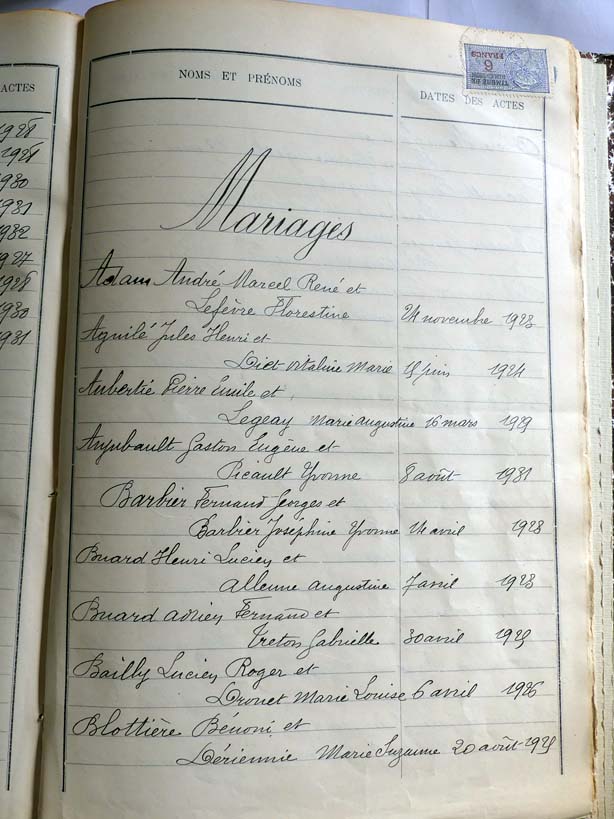 ACTES
1928
1928
1930
1931
1932
1927
1928
1930
1931
NOMS ET PRÉNOMS
DATES DES ACTES
6
FRANCS
Mariages
Adam André Marcel René et
Lefèvre Florestine 24 novembre 1923
Aguilé Jules Henri et
Diet Vitaline Marie juin 1924
Aubertié Pierre Emile et
Legeay Marie Augustine 16 mars 1929
Anjubault Gaston Eugène et
Picault Yvonne 8 août 1931
Barbier Fernand Georges et
Barbier Joséphine Yvonne 24 avril 1928
Buard Henri Lucien et
Alleune Augustine 7 avril 1923
Buard Adrien Fernand et
Creton Gabrielle 30 avril
Bailly Lucien Roger et
Drouet Marie Louise 6 avril 1926
Blottière Bénoni et
Dériennie Marie Suzanne 20 août